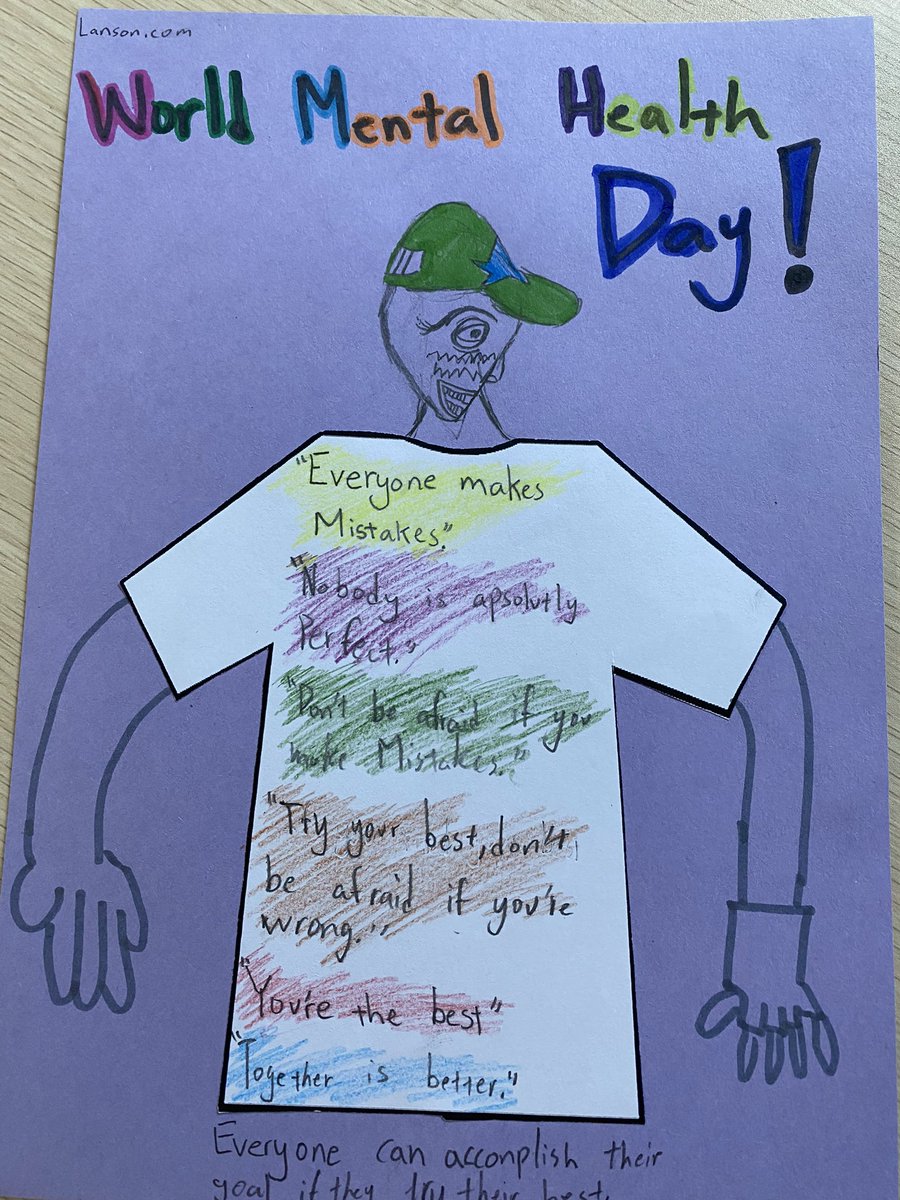 Lanson.com
World Mental Health
Day!
"Everyone makes
Mistakes."
"Nobody is apsolutly
Perfect."
"Don't be afraid if you
make Mistakes."
"Try your best, don't
be afraid if you're
wrong."
"You're the best"
"Together is better."
Everyone can acconplish their
goal if they try their best.